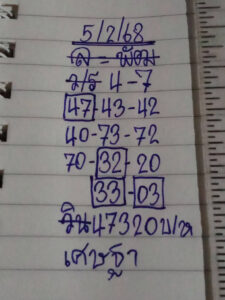 5/2/68
ล = พัฒม
ม/ร 4-7
47-43-42
40-73-72
70-32-20
33-03
วิน 47320 บ/ท
เศษฐา